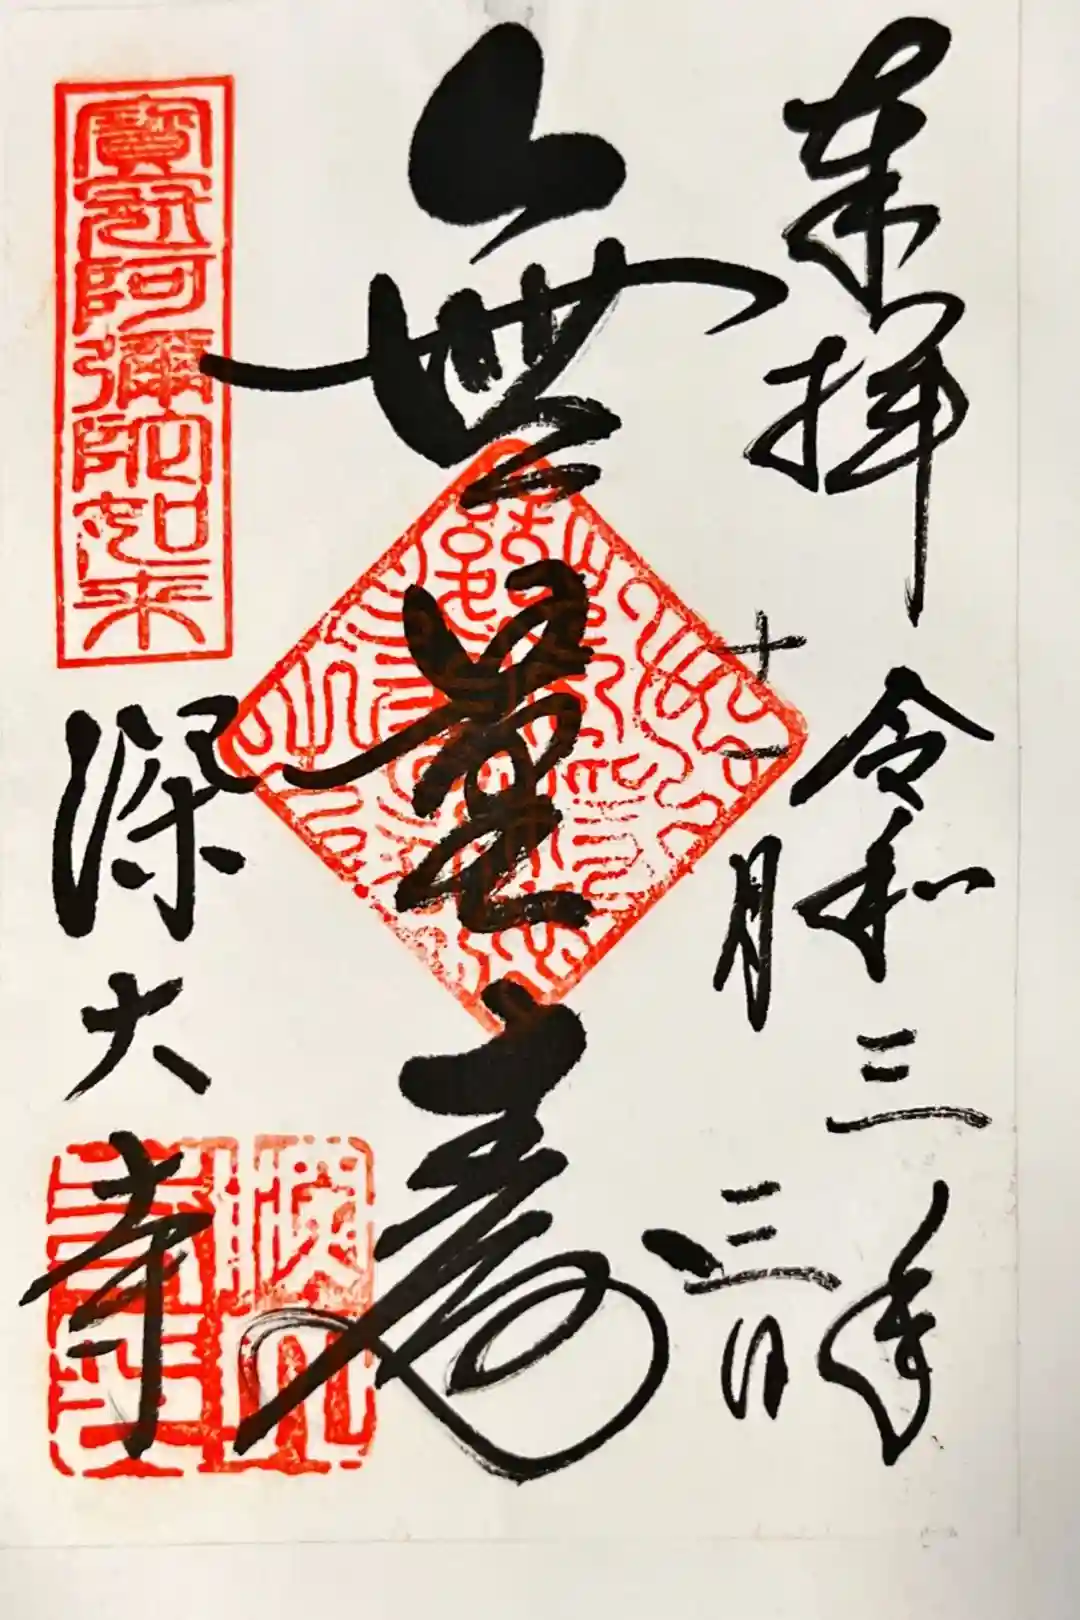 奉拝
令和三年
十一月
三日
無量寿
寳冠阿彌陀如来
深大寺